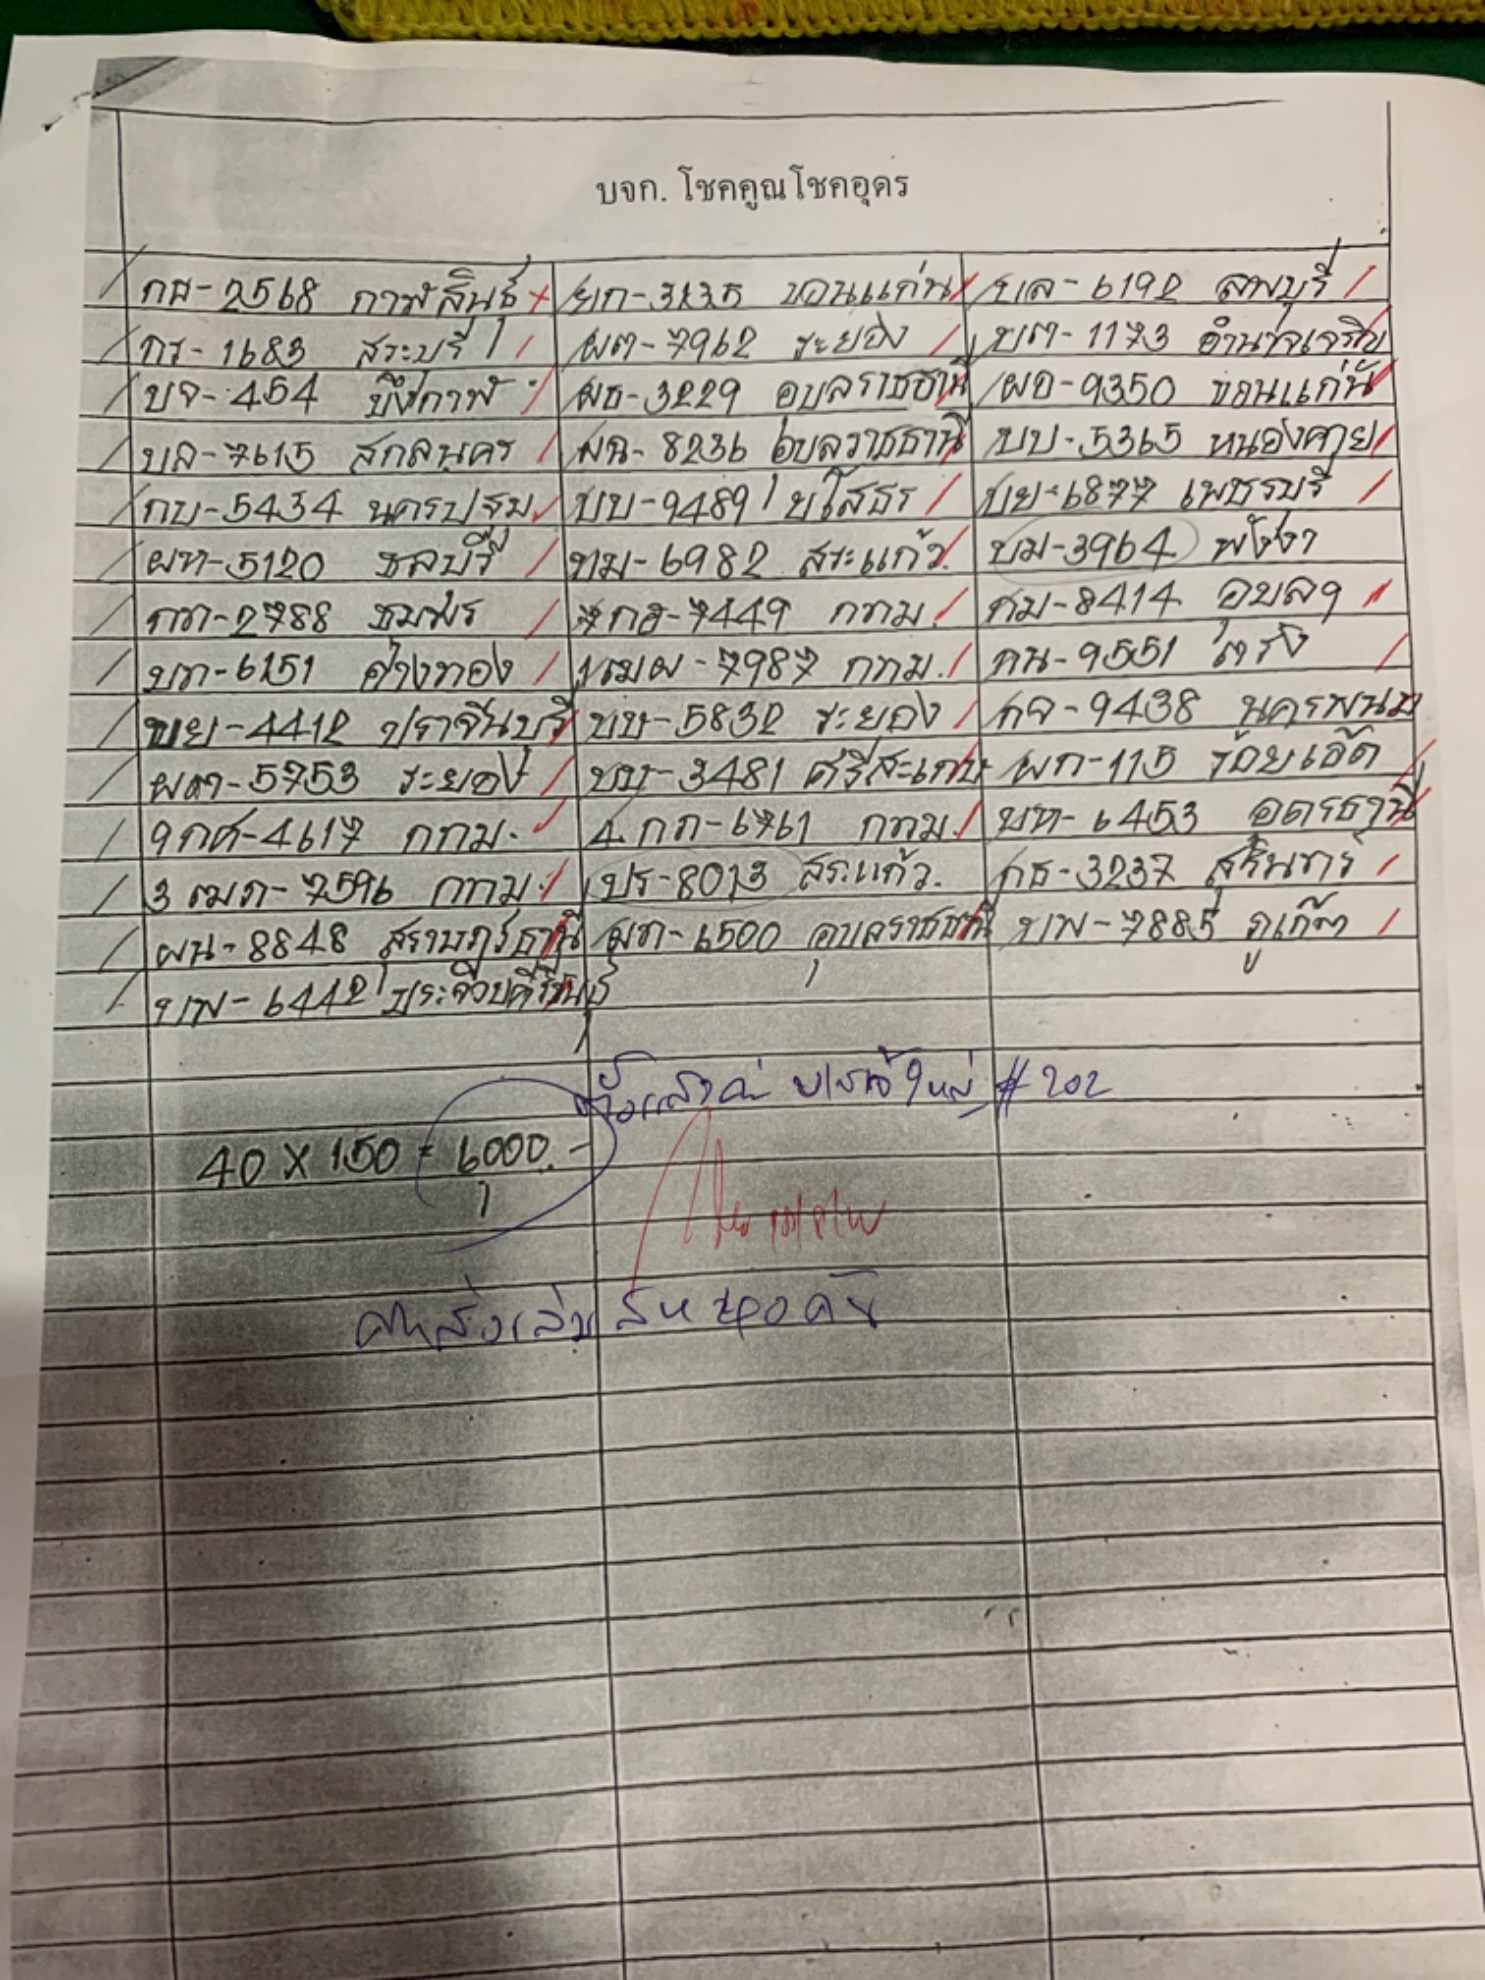 บจก. โชคคูณโชคอุดร
กส-2568 กาฬสินธุ์ ยก-3135 ขอนแก่น บล-6192 ลพบุรี
กร-1683 สระบุรี ผต-7962 ระยอง บต-1173 อำนาจเจริญ
บจ-454 บึงกาฬ ผธ-3229 อุบลราชธานี ผอ-9350 ขอนแก่น
บล-7615 สกลนคร ผฉ-8236 อุบลราชธานี บบ-5365 หนองคาย
กบ-5434 นครปฐม บบ-9489 ยโสธร บย-6877 เพชรบุรี
ผท-5120 ชลบุรี ทม-6982 สระแก้ว บม-3964 พังงา
กท-2788 ชุมพร 7กฐ-7449 กทม. กม-8414 อุบลฯ
บท-6151 อ่างทอง 1ฒผ-7987 กทม. กน-9551 ตรัง
ขย-4412 ปราจีนบุรี บษ-5832 ระยอง กจ-9438 นครพนม
ผต-5753 ระยอง บบ-3481 ศรีสะเกษ ผก-115 ร้อยเอ็ด
9กศ-4617 กทม. 4กภ-6761 กทม. บท-6453 อุดรธานี
3ฒภ-7596 กทม. ปร-8013 สระแก้ว. กธ-3237 สุรินทร์
ผน-8848 สุราษฎร์ธานี ผท-6500 อุบลราชธานี บพ-7885 ภูเก็ต
บพ-6442 ประจวบคีรีขันธ์
#202
40 X 150 = 6000.-